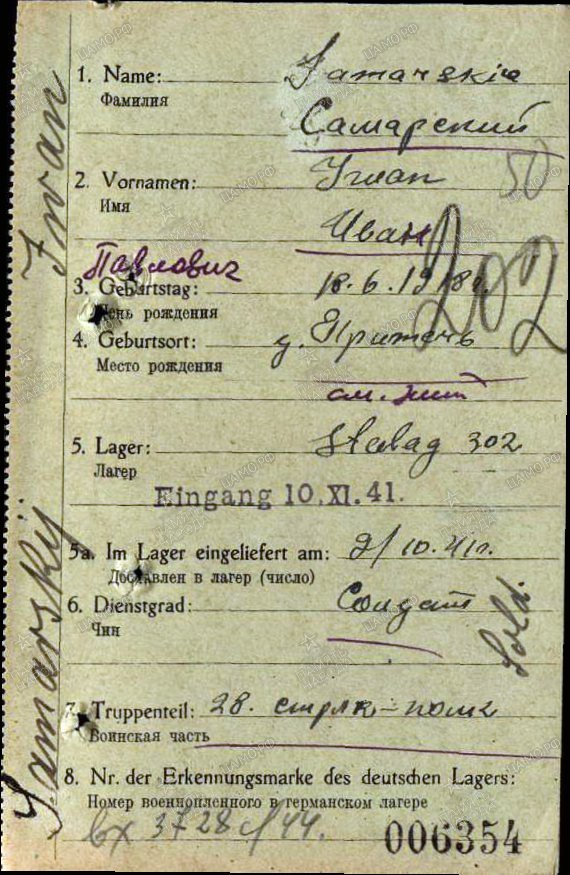 1. Name: Samarskie
Фамилия
Самарский
2. Vornamen: Iwan
Имя
50
Иван
202
Павлович
3. Geburtstag: 18.6.1918г.
День рождения
4. Geburtsort: д.
Место рождения
5. Lager: Stalag 302
Лагер
Eingang 10.XI.41.
5a. Im Lager eingeliefert am: 2/10.41г.
Доставлен в лагер (число)
6. Dienstgrad: Солдат
Чин
Sold.
7. Truppenteil: 28. стрлк-полк
Воинская часть
8. Nr. der Erkennungsmarke des deutschen Lagers:
Номер военнопленного в германском лагере
вх 3728с/44.
006354
Samarskÿ Iwan